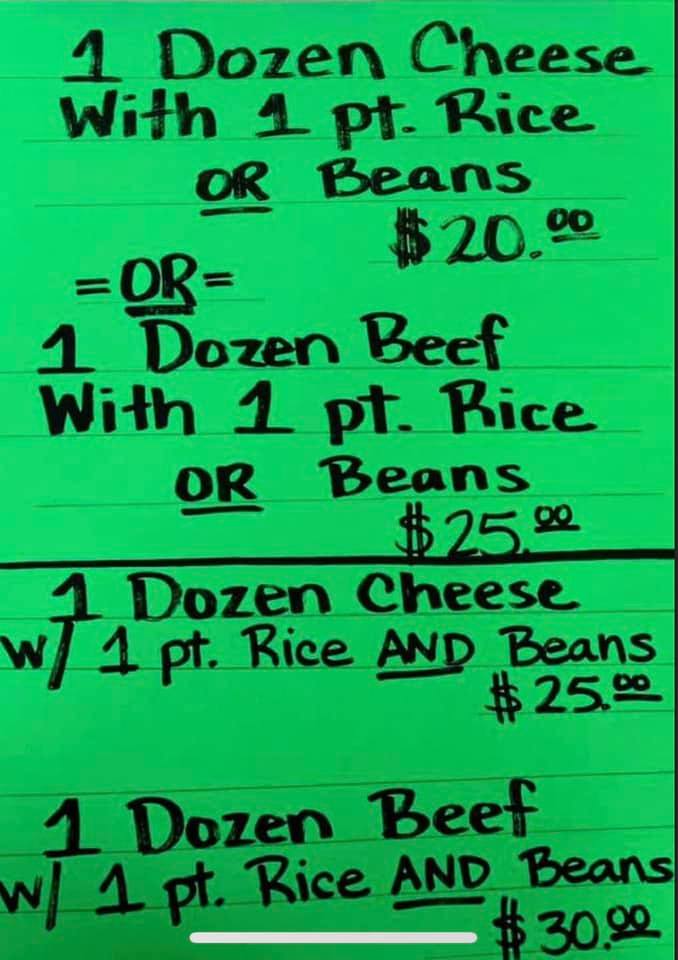 1 Dozen Cheese
With 1 pt. Rice
OR Beans
$20.00
=OR=
1 Dozen Beef
With 1 pt. Rice
OR Beans
$25.00
1 Dozen Cheese
w/ 1 pt. Rice AND Beans
$25.00
1 Dozen Beef
w/ 1 pt. Rice AND Beans
$30.00